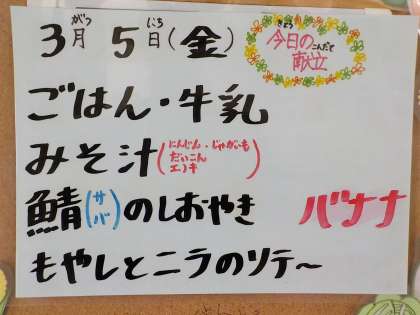 3月(がつ) 5日(にち)(金)
今日(きょう)の献立(こんだて)
ごはん・牛乳
みそ汁(にんじん・じゃがいも
だいこん
エノキ)
鯖(サバ)のしおやき バナナ
もやしとニラのソテ〜